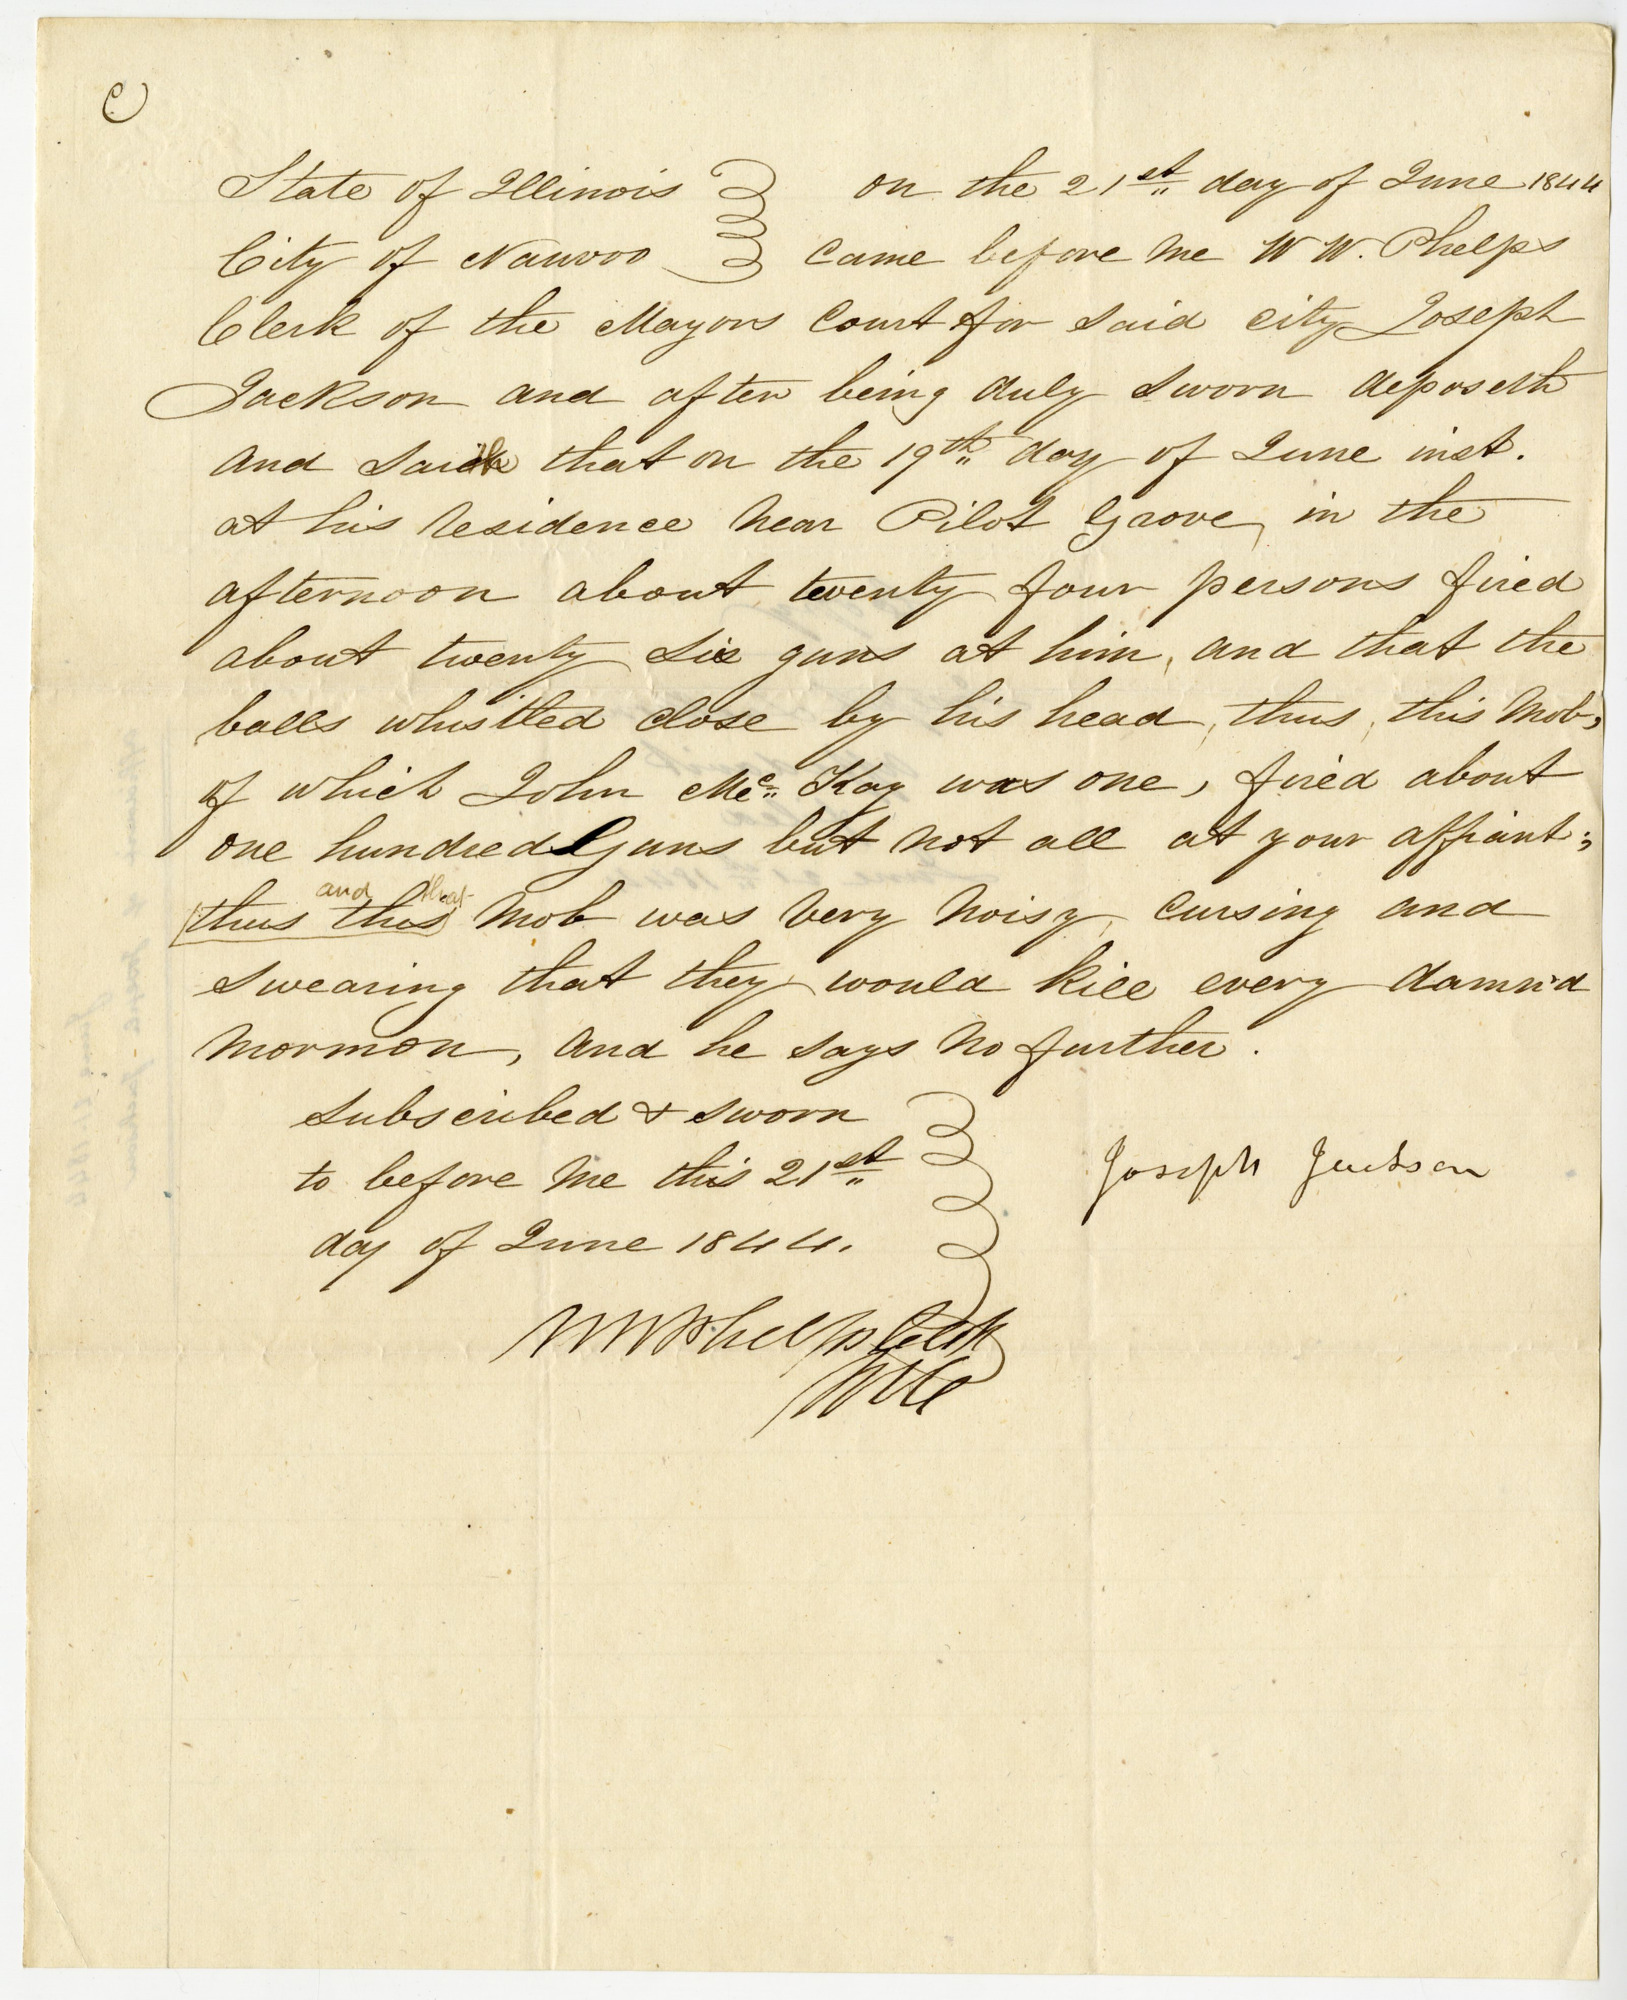 C
State of Illinois on the 21st day of June 1844
City of Nauvoo came before me W W. Phelps
Clerk of the Mayors Court for said city Joseph
Jackson and after being duly sworn deposeth
and saith that on the 19th day of June inst.
at his residence near Pilot Grove, in the
afternoon about twenty four persons fired
about twenty six guns at him, and that the
balls whistled close by his head, thus, this mob,
of which John Mc Kay was one, fired about
one hundred Guns but not all at your affiant;
and that
thus this mob was very noisy, cursing and
swearing that they would kill every damn'd
mormon, and he says no further.
subscribed & sworn
to before me this 21st
day of June 1844.
Joseph Jackson
W W Phelps Clerk
M C